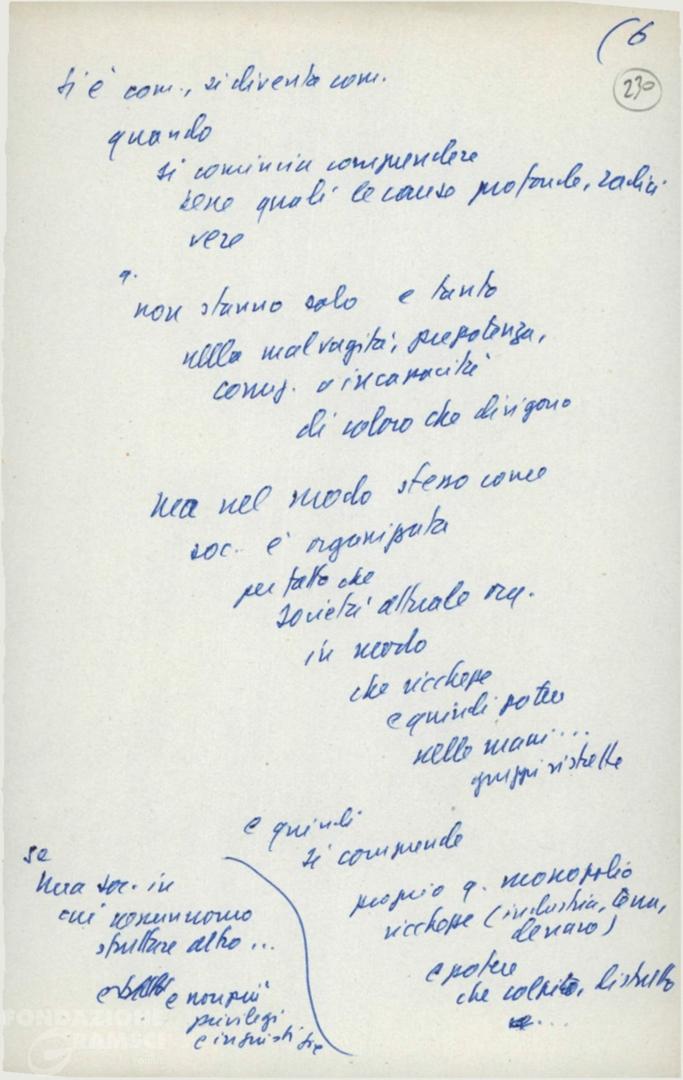 (6
230
si è com., si diventa com.
quando
si comincia comprendere
bene quali le cause profonde, radici
vere
q.
non stanno solo e tanto
nella malvagità, prepotenza,
corruz. o incapacità
di coloro che dirigono
ma nel modo stesso come
soc. è organizzata
per fatto che
società attuale org.
in modo
che ricchezze
e quindi potere
nelle mani...
gruppi ristretti
e quindi
si comprende
proprio q. monopolio
ricchezze (industria, terra,
denaro)
e potere
che colpito, distrutto
...
se
una soc. in
cui nessun uomo
sfruttare altro...
e non più
privilegi
e ingiustizie
FONDAZIONE
GRAMSCI